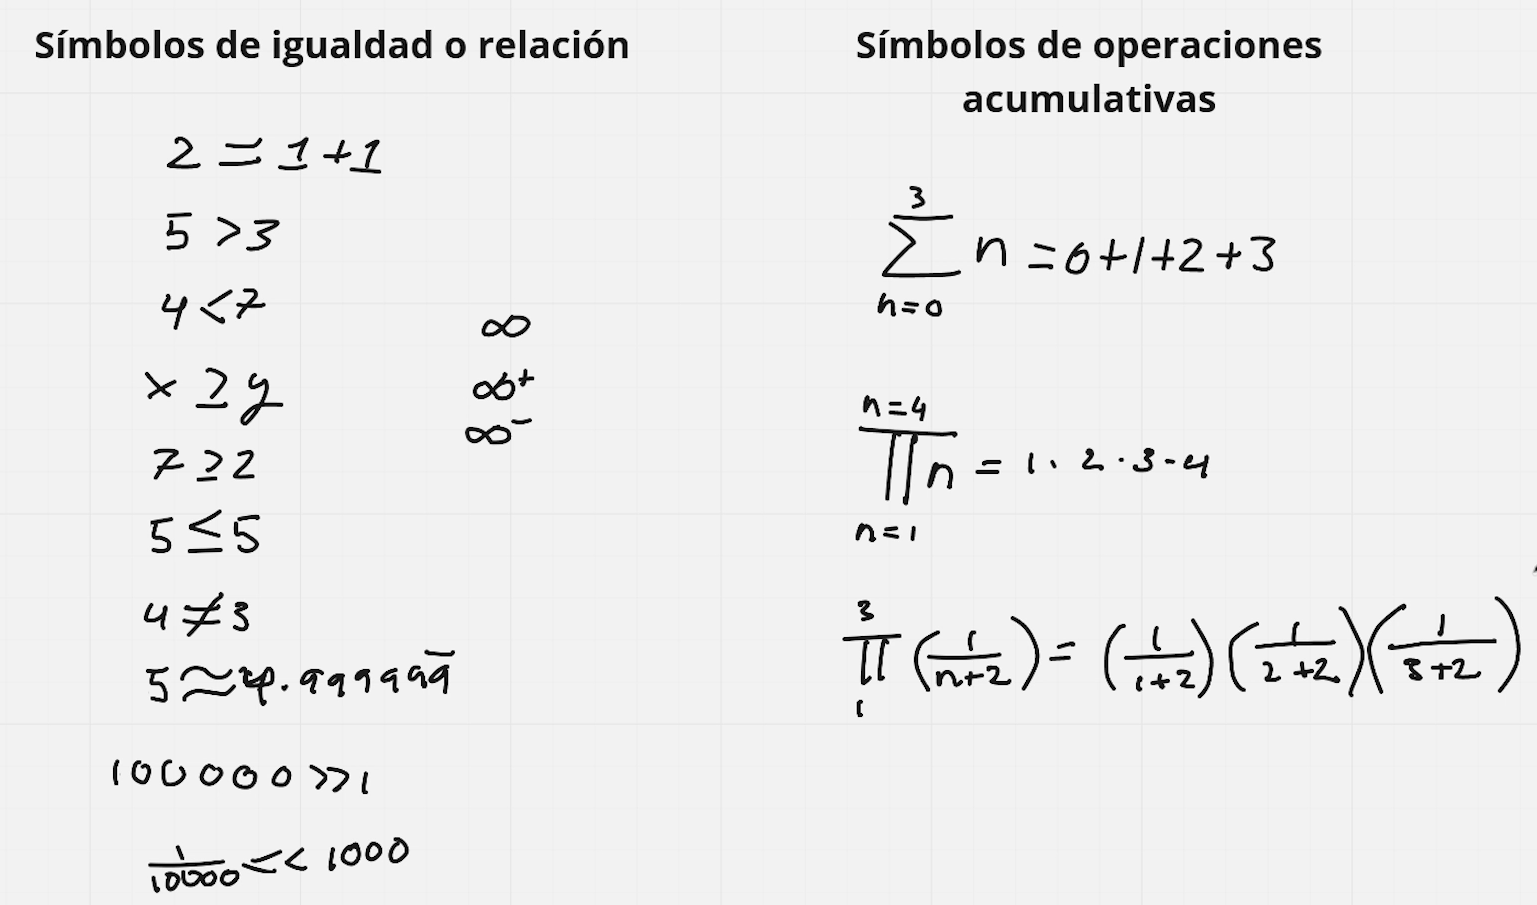 Símbolos de igualdad o relación
2 = 1 + 1
5 > 3
4 < 7
x ≥ y
7 ≥ 2
5 ≤ 5
4 ≠ 3
5 ≈ 4.999999̅
100000 >> 1
1/10000 << 1000
∞
∞⁺
∞⁻
Símbolos de operaciones
acumulativas
3
∑ n = 0+1+2+3
n=0
n=4
∏ n = 1 · 2 · 3 · 4
n=1
3
∏ (1/(n+2)) = (1/(1+2)) (1/(2+2)) (1/(3+2))
1